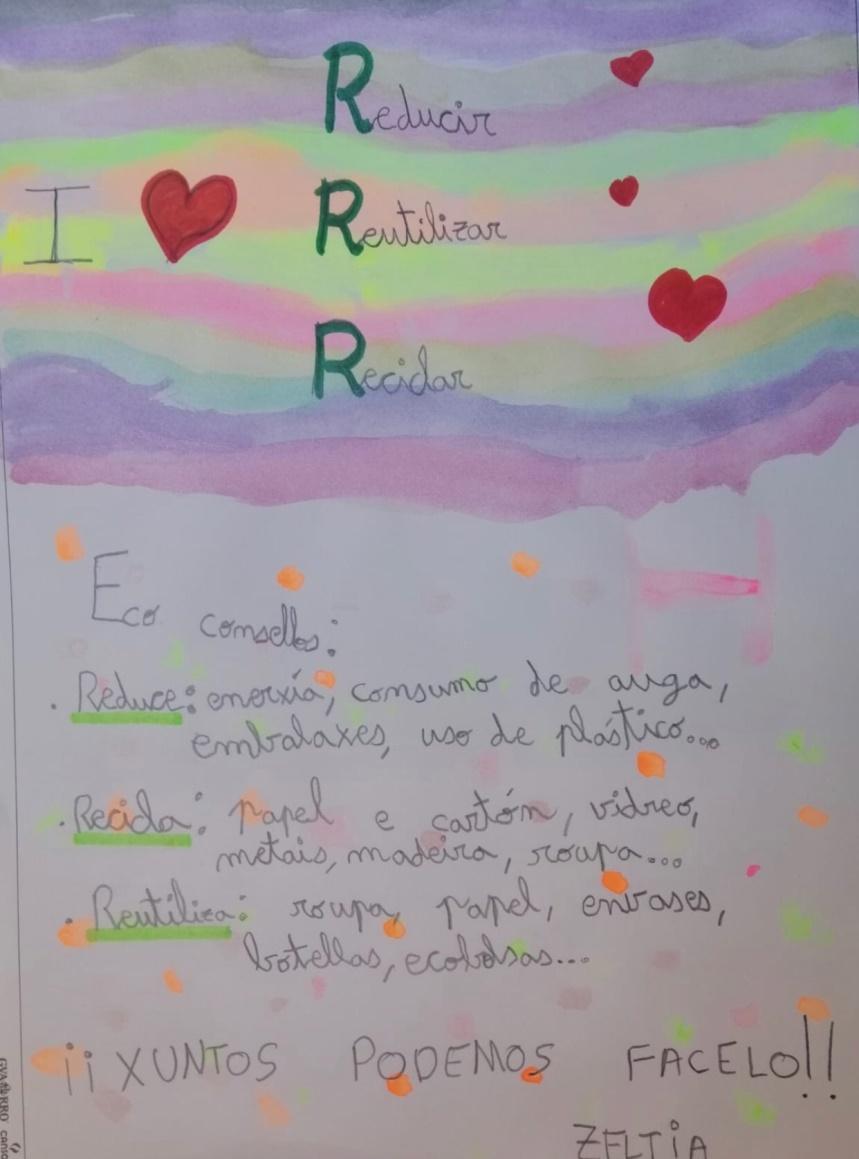 Reducir
I Reutilizar
Reciclar
Eco consellos:
. Reduce: enerxía, consumo de auga,
embalaxes, uso de plástico...
. Recicla: papel e cartón, vidreo,
metais, madeira, roupa...
. Reutiliza: roupa, papel, envases,
botellas, ecobolsas...
¡¡XUNTOS PODEMOS FACELO!!
ZELTIA
GVARRO canson